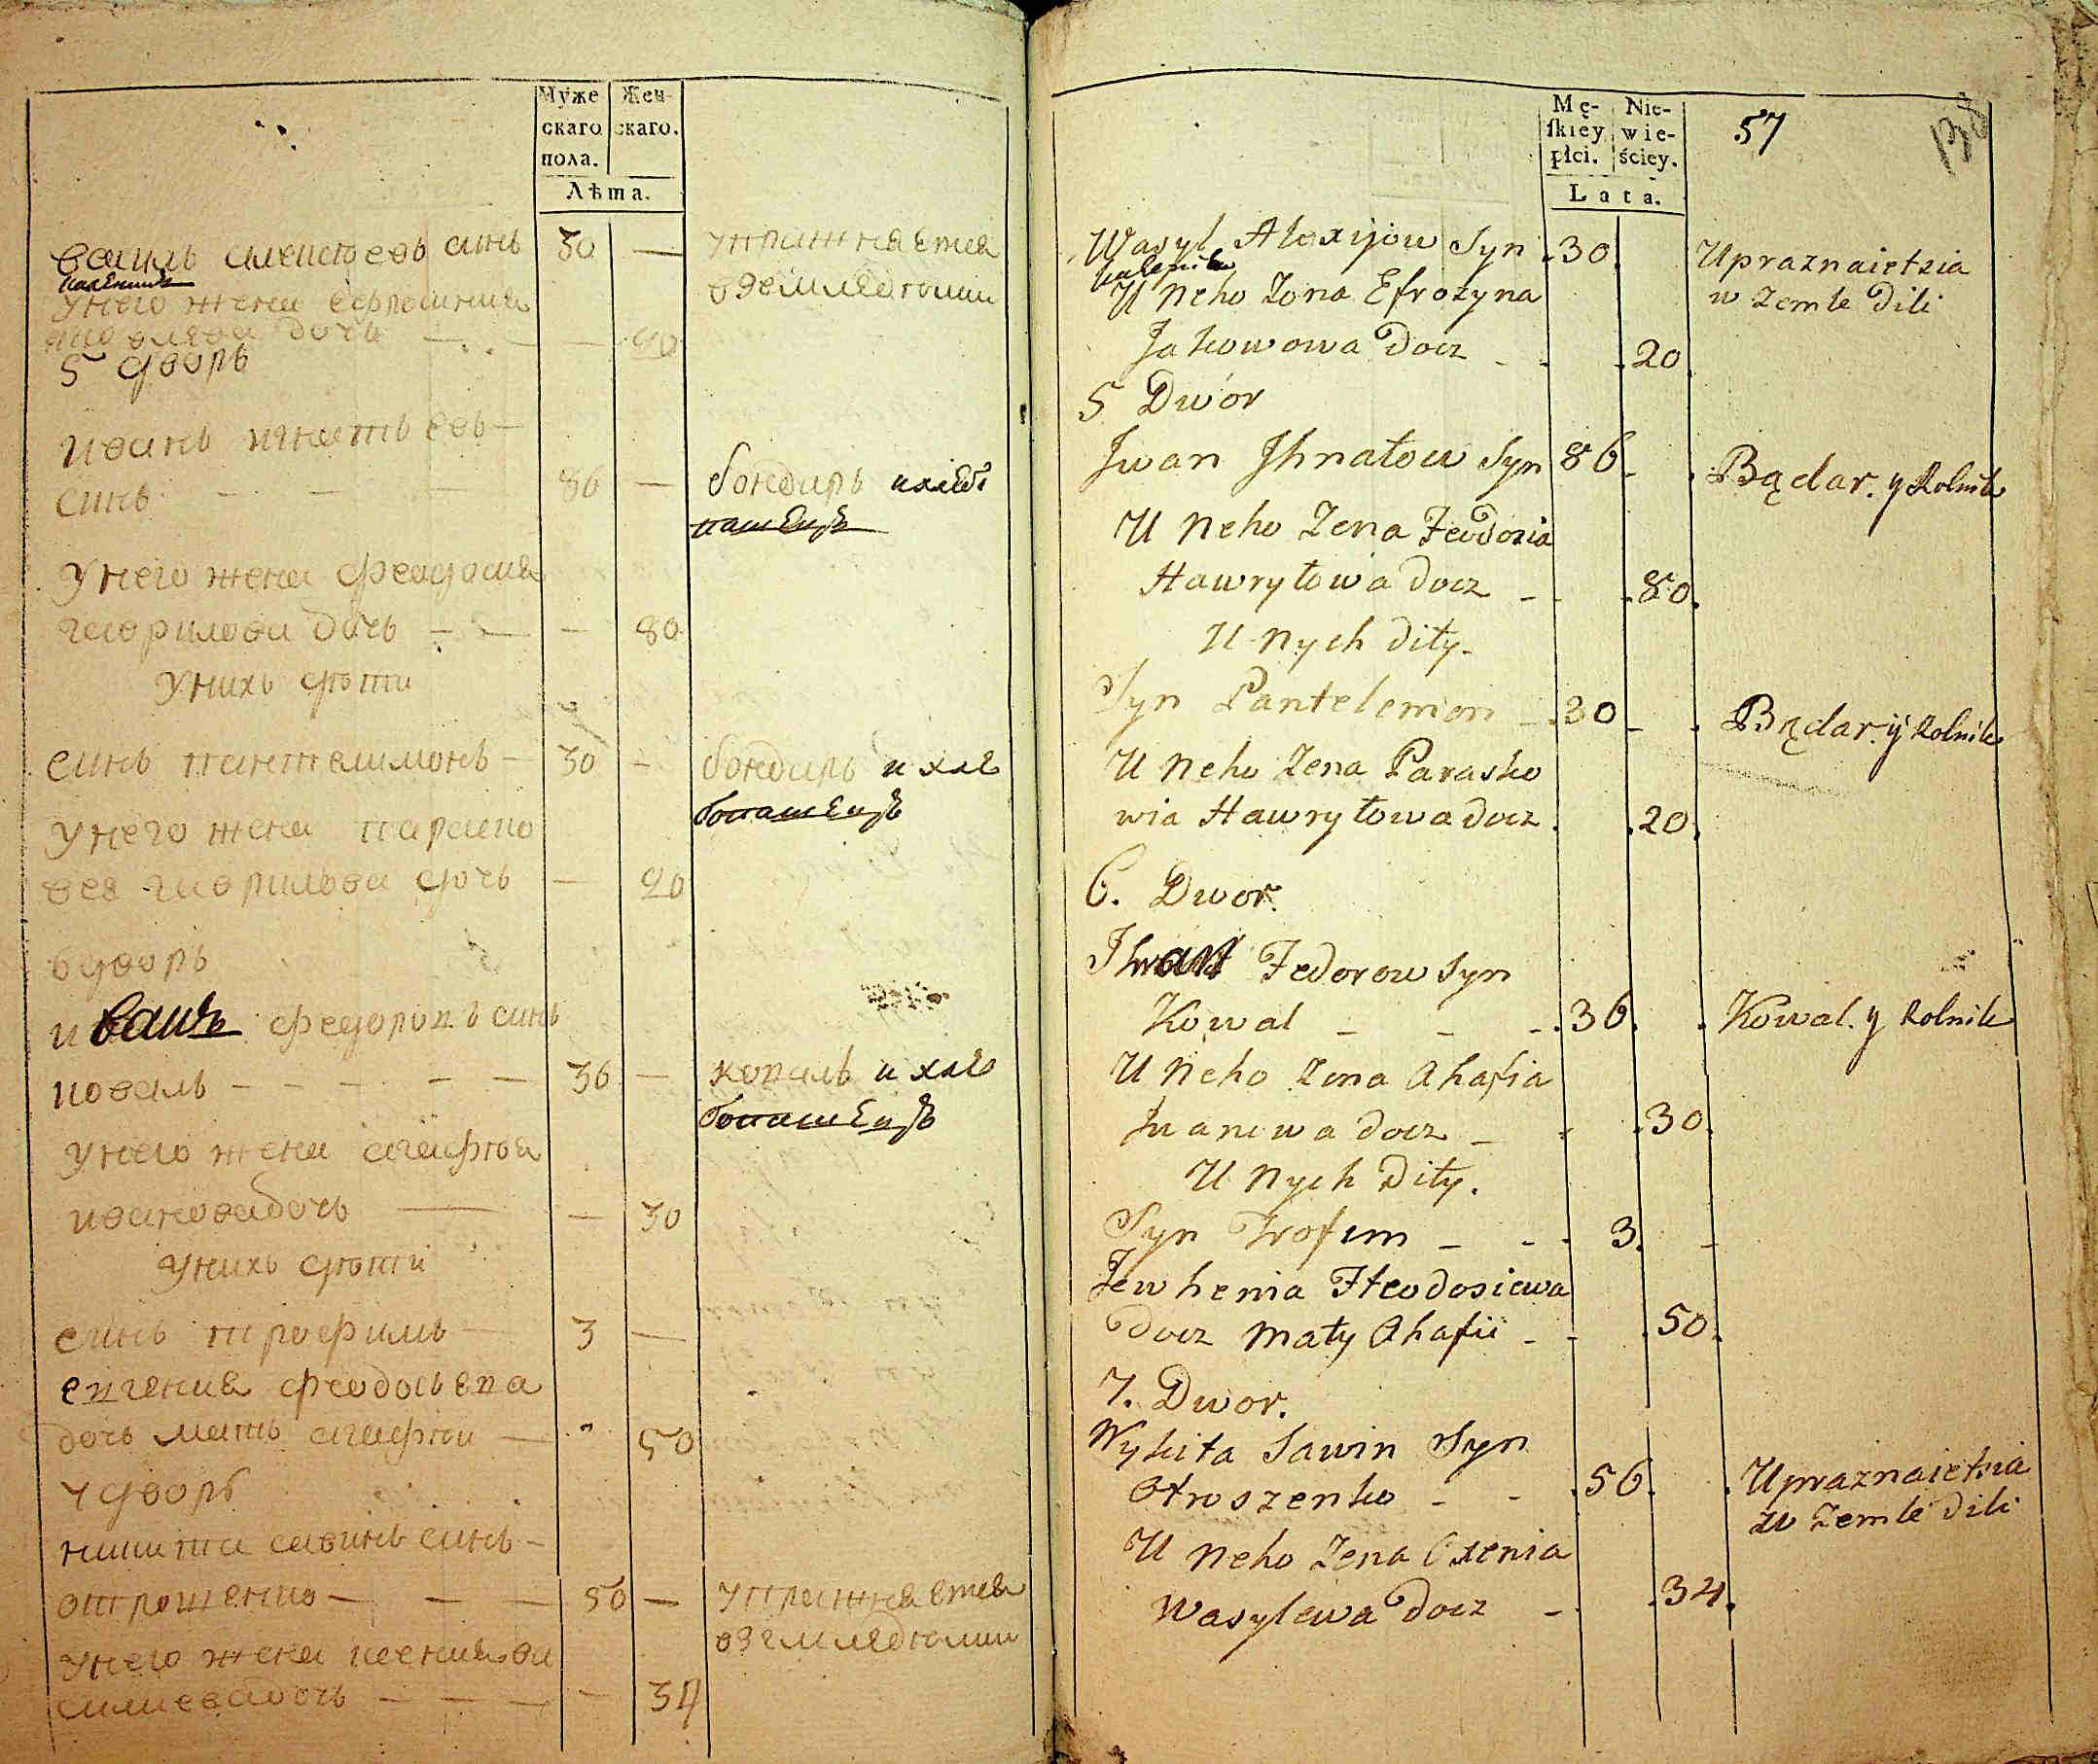 Муже
скаго
пола.
Жен-
скаго.
Лѣта.
василь алексѣевъ синъ 30 — упражняется
у него жена ефросиния в земледелии
яковлева дочь — — 20
5 дворъ
иванъ игнатьевъ —
синъ — — — 86 — бондарь и хлѣбо
пашецъ
у него жена феодосия
гаврилова дочь — — — 80
у нихъ дѣти
синъ пантелимонъ — 30 — бондарь и хлѣ
бопашецъ
у него жена параско
вея гаврилова дочь — 20
6 дворъ
иванъ федоровъ синъ
коваль — — — — — 36 — коваль и хлѣ
бопашецъ
у него жена агафия
иванова дочь — — 30
у нихъ дѣти
синъ трофимъ — 3 —
евгения феодосьева
дочь мать агафии — 50
7 дворъ
никита савинъ синъ —
отрошенко — — — 56 — упражняется
в земледелии
у него жена ксения ва
силиева дочь — — — — 34
Mę-
skiey
płci.
Nie-
wie-
ściey.
Lata.
57
Wasyl Alexijow Syn .30. Upraznaietsia
U Neho Zona Efrozyna w Zemle Dili
Jakowowa Docz - - .20.
5 Dwór
Jwan Jhnatow Syn 86 - . Bądar. y Rolnik
U Neho Zena Feodozia
Hawryłowa Docz - - .80.
U Nych Dity.
Syn Pantelemon - .30 - . Bądar. ÿ Rolnik
U Neho Zena Parasko
wia Hawryłowa Docz . .20.
6. Dwor.
Iwan Fedorow Syn
Kowal - - - .36. . Kowal. y Rolnik
U Neho Zena Ahafia
Jwanowa Docz - . .30.
U Nych Dity.
Syn Trofim - - . 3. -
Jewhenia Fteodosiewa
Docz Maty Ahafii - - .50.
7. Dwor.
Nykita Sawin Syn
Otroszenko - - .56. . Upraznaietsia
w Zemle Dili
U Neho Zena Oxenia
Wasylewa Docz - .34.